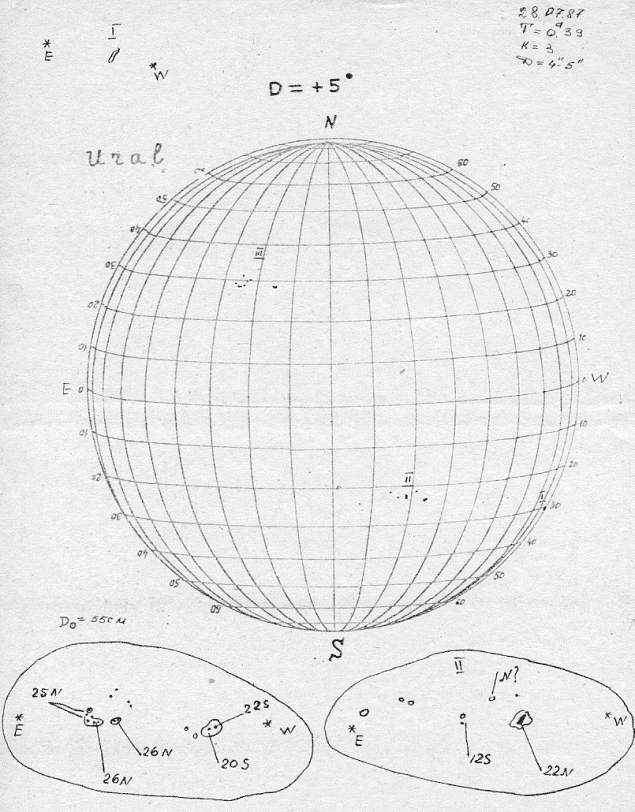 I
* E
* W
28.07.87
T = 0.39
K = 3
D = 4"-5"
D = + 5°
N
Ural
60
60
50
50
40
40
III
30
30
20
20
10
10
E 0
0 W
10
10
20
20
II
I
30
30
40
40
50
50
60
60
D₀ = 55 cm
S
II
N?
25N
22S
* E
* W
* E
* W
26N
26N
20S
12S
22N